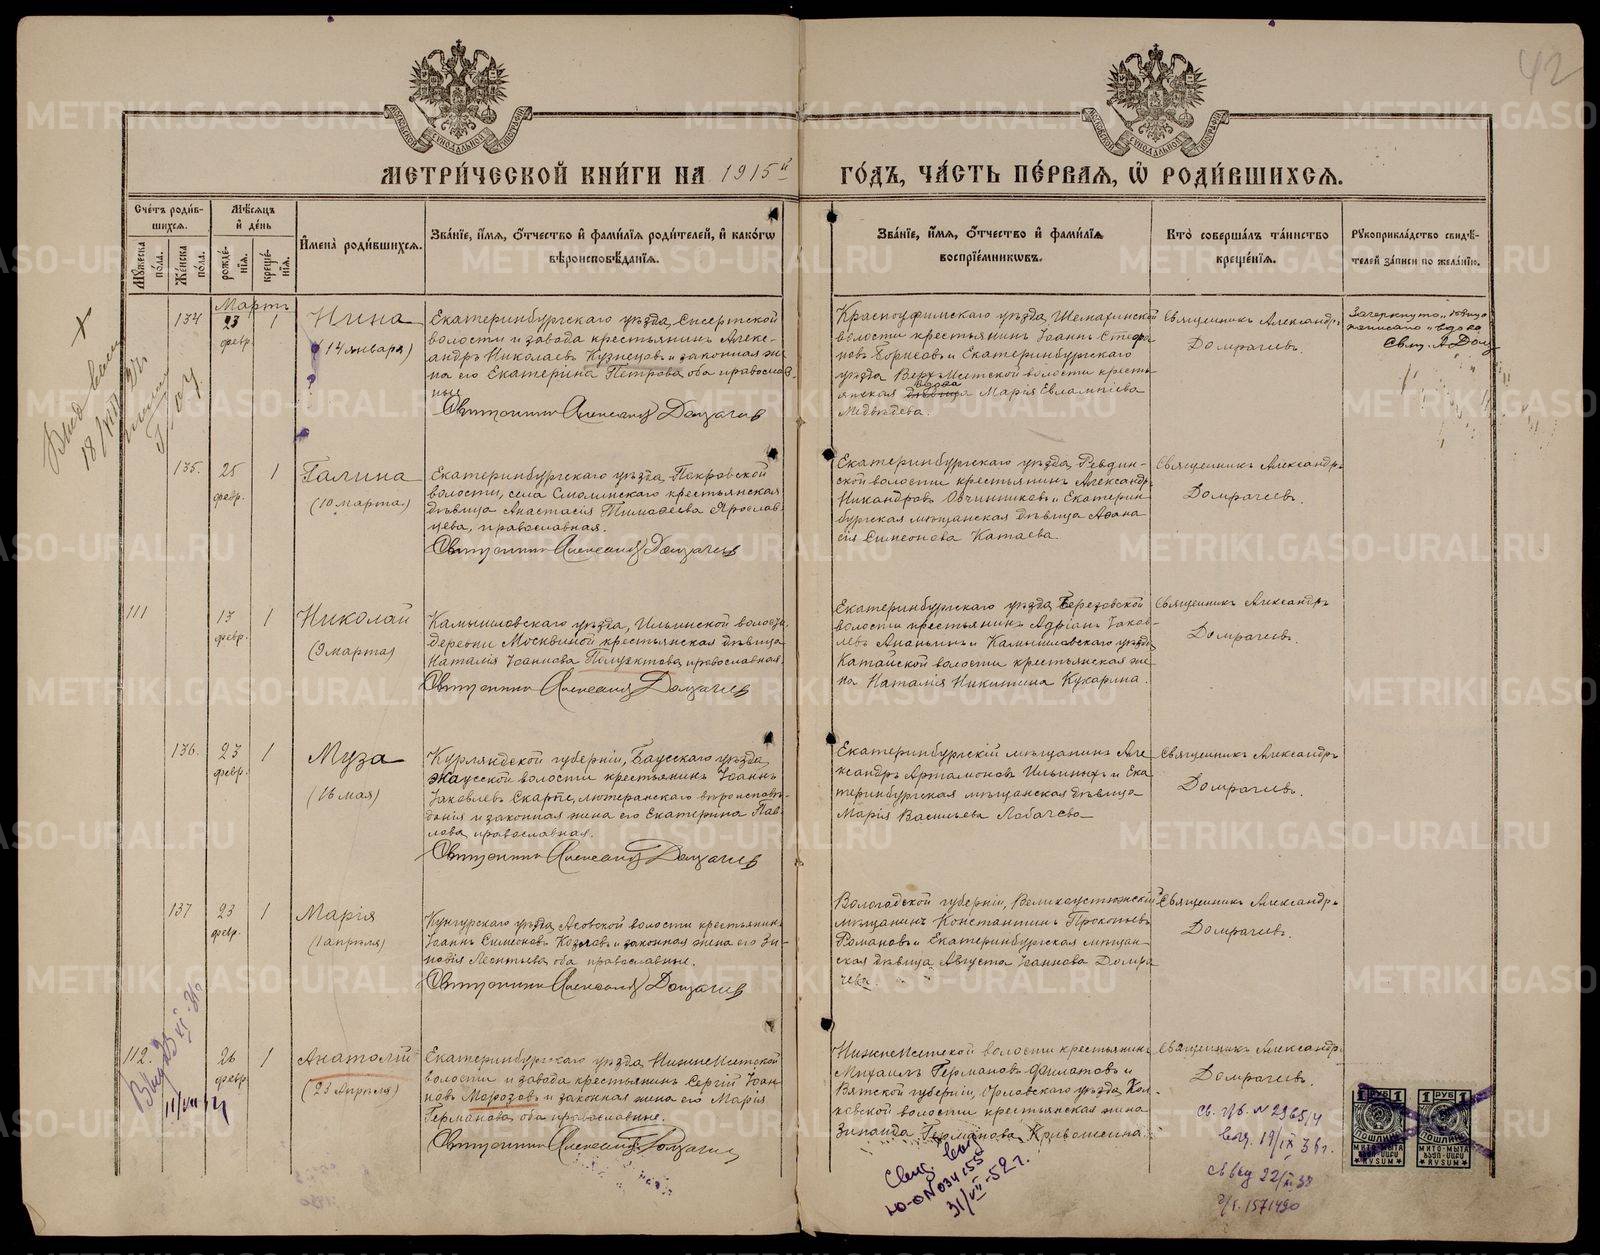 42
МЕТРИ́ЧЕСКОЙ КНИ́ГИ НА 1915й ГО́ДЪ, ЧА́СТЬ ПЕ́РВАЯ, Ѡ РОДИ́ВШИХСЯ.
Сче́тъ роди́вшихся.
Мꙋ́жеска по́ла.
Же́нска по́ла.
Мѣ́сяцъ и де́нь
рожде́нія.
креще́нія.
Имена̀ роди́вшихся.
Зва́ніе, и́мя, ѻ́тчество и фами́лія роди́телей, и како́гѡ
вѣроисповѣ́данія.
Зва́ніе, и́мя, ѻ́тчество и фами́лія
воспріе́мниковъ.
Кто̀ соверша́лъ та́инство
креще́нія.
Рꙋкоприкла́дство свидѣ́-
телей за́писи по жела́нію.
Мартъ
134
23
февр.
1
Нина
(14 января)
Екатеринбургскаго уѣзда, Сысертской
волости и завода крестьянинъ Алексе-
андръ Николаевъ Кузнецовъ и законная же
на его Екатерина Петрова, оба православ-
ные
Священникъ Александръ Домрачевъ
Красноуфимскаго уѣзда, Шемаринской
волости крестьянинъ Іоаннъ Стефа
новъ Борисовъ и Екатеринбургскаго
уѣзда Верх-Исетской волости кресть
янская вдова Марія Евлампіева
Медвѣдева.
Священникъ Александръ
Домрачевъ.
Зачеркнуто „дѣвица
написано „вдова
Свящ. А. Дом
135.
25
февр.
1
Галина
(10 марта)
Екатеринбургскаго уѣзда, Покровской
волости, села Смолинскаго крестьянская
дѣвица Анастасія Тимофеева Ярослав
цева, православная.
Священникъ Александръ Домрачевъ
Екатеринбургскаго уѣзда, Ревдин-
ской волости крестьянинъ Александръ
Никандровъ Овчинниковъ и Екатерин
бургская мѣщанская дѣвица Афана
сія Симеонова Катаева.
Священникъ Александръ
Домрачевъ.
111
13
февр.
1
Николай
(9 марта)
Камышловскаго уѣзда, Ильинской волости,
деревни Москвиной крестьянская дѣвица
Наталія Іоаннова Полуэктова, православная.
Священникъ Александръ Домрачевъ
Екатеринбургскаго уѣзда Березовской
волости крестьянинъ Адріанъ Іаков
левъ Ананьинъ и Камышловскаго уѣзда,
Катайской волости крестьянская же
на Наталія Никитина Кукарина.
Священникъ Александръ
Домрачевъ.
136.
23
февр.
1
Муза
(16 мая)
Курляндской губерніи, Баусскаго уѣзда,
волости крестьянинъ Іоаннъ
Іаковлевъ Скарпе, лютеранскаго вѣроисповѣ-
данія и законная жена его Екатерина Пав-
лова, православная.
Священникъ Александръ Домрачевъ
Екатеринбургскій мѣщанинъ Але
ксандръ Артамоновъ Ильиныхъ и Ека
теринбургская мѣщанская дѣвица
Марія Васильева Лобачева
Священникъ Александръ
Домрачевъ.
137
23
февр.
1
Марія
(1 апрѣля)
Кунгурскаго уѣзда, Асовской волости крестьянинъ
Іоаннъ Симеоновъ Козловъ и законная жена его Зи-
новія Леонтьева, оба православные.
Священникъ Александръ Домрачевъ
Вологодской губерніи, Великоустюжскій
мѣщанинъ Константинъ Прокопьевъ
Романовъ и Екатеринбургская мѣщан-
ская дѣвица Августа Іоаннова Домра
чева.
Священникъ Александръ
Домрачевъ.
112.
26
февр.
1
Анатолій
(23 Апрѣля)
Екатеринбургскаго уѣзда, Нижне-Исетской
волости и завода крестьянинъ Сергій Іоан
новъ Морозовъ и законная жена его Марія
Германова, оба православные.
Священникъ Александръ Домрачевъ
Нижне-Исетской волости крестьянинъ
Михаилъ Германовъ Филатовъ и
Вятской губерніи, Орловскаго уѣзда, Кол-
ковской волости крестьянская жена
Зинаида Германова Кривошеина.
Священникъ Александръ
Домрачевъ.
Свид. выд.
Ю-О № 034155
31/VII-52 г.
1 РУБ 1
ПОШЛИНА
1 РУБ 1
ПОШЛИНА
METRIKI.GASO-URAL.RU